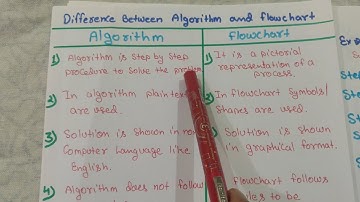 Difference Between Algorithm and Flowchart
Algorithm
1) Algorithm is step by step
procedure to solve the problem
2) In algorithm plaintext
are used.
3) Solution is shown in non
Computer Language like
English.
4) Algorithm does not follow
Flowchart
1) It is a pictorial
representation of
a process.
2) In flowchart symbols/
shapes are used.
Solution is shown
in graphical format.
Flowchart follows
to be